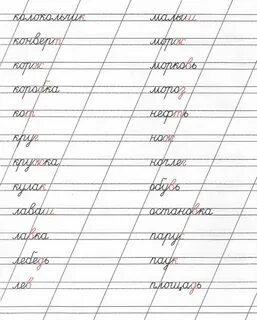 колокольчик
конверт
корж
коробка
кот
круг
кружка
кулак
лаваш
лавка
лебедь
лев
малыш
морж
морковь
мороз
нефть
нож
ночлег
обувь
остановка
парус
паук
площадь